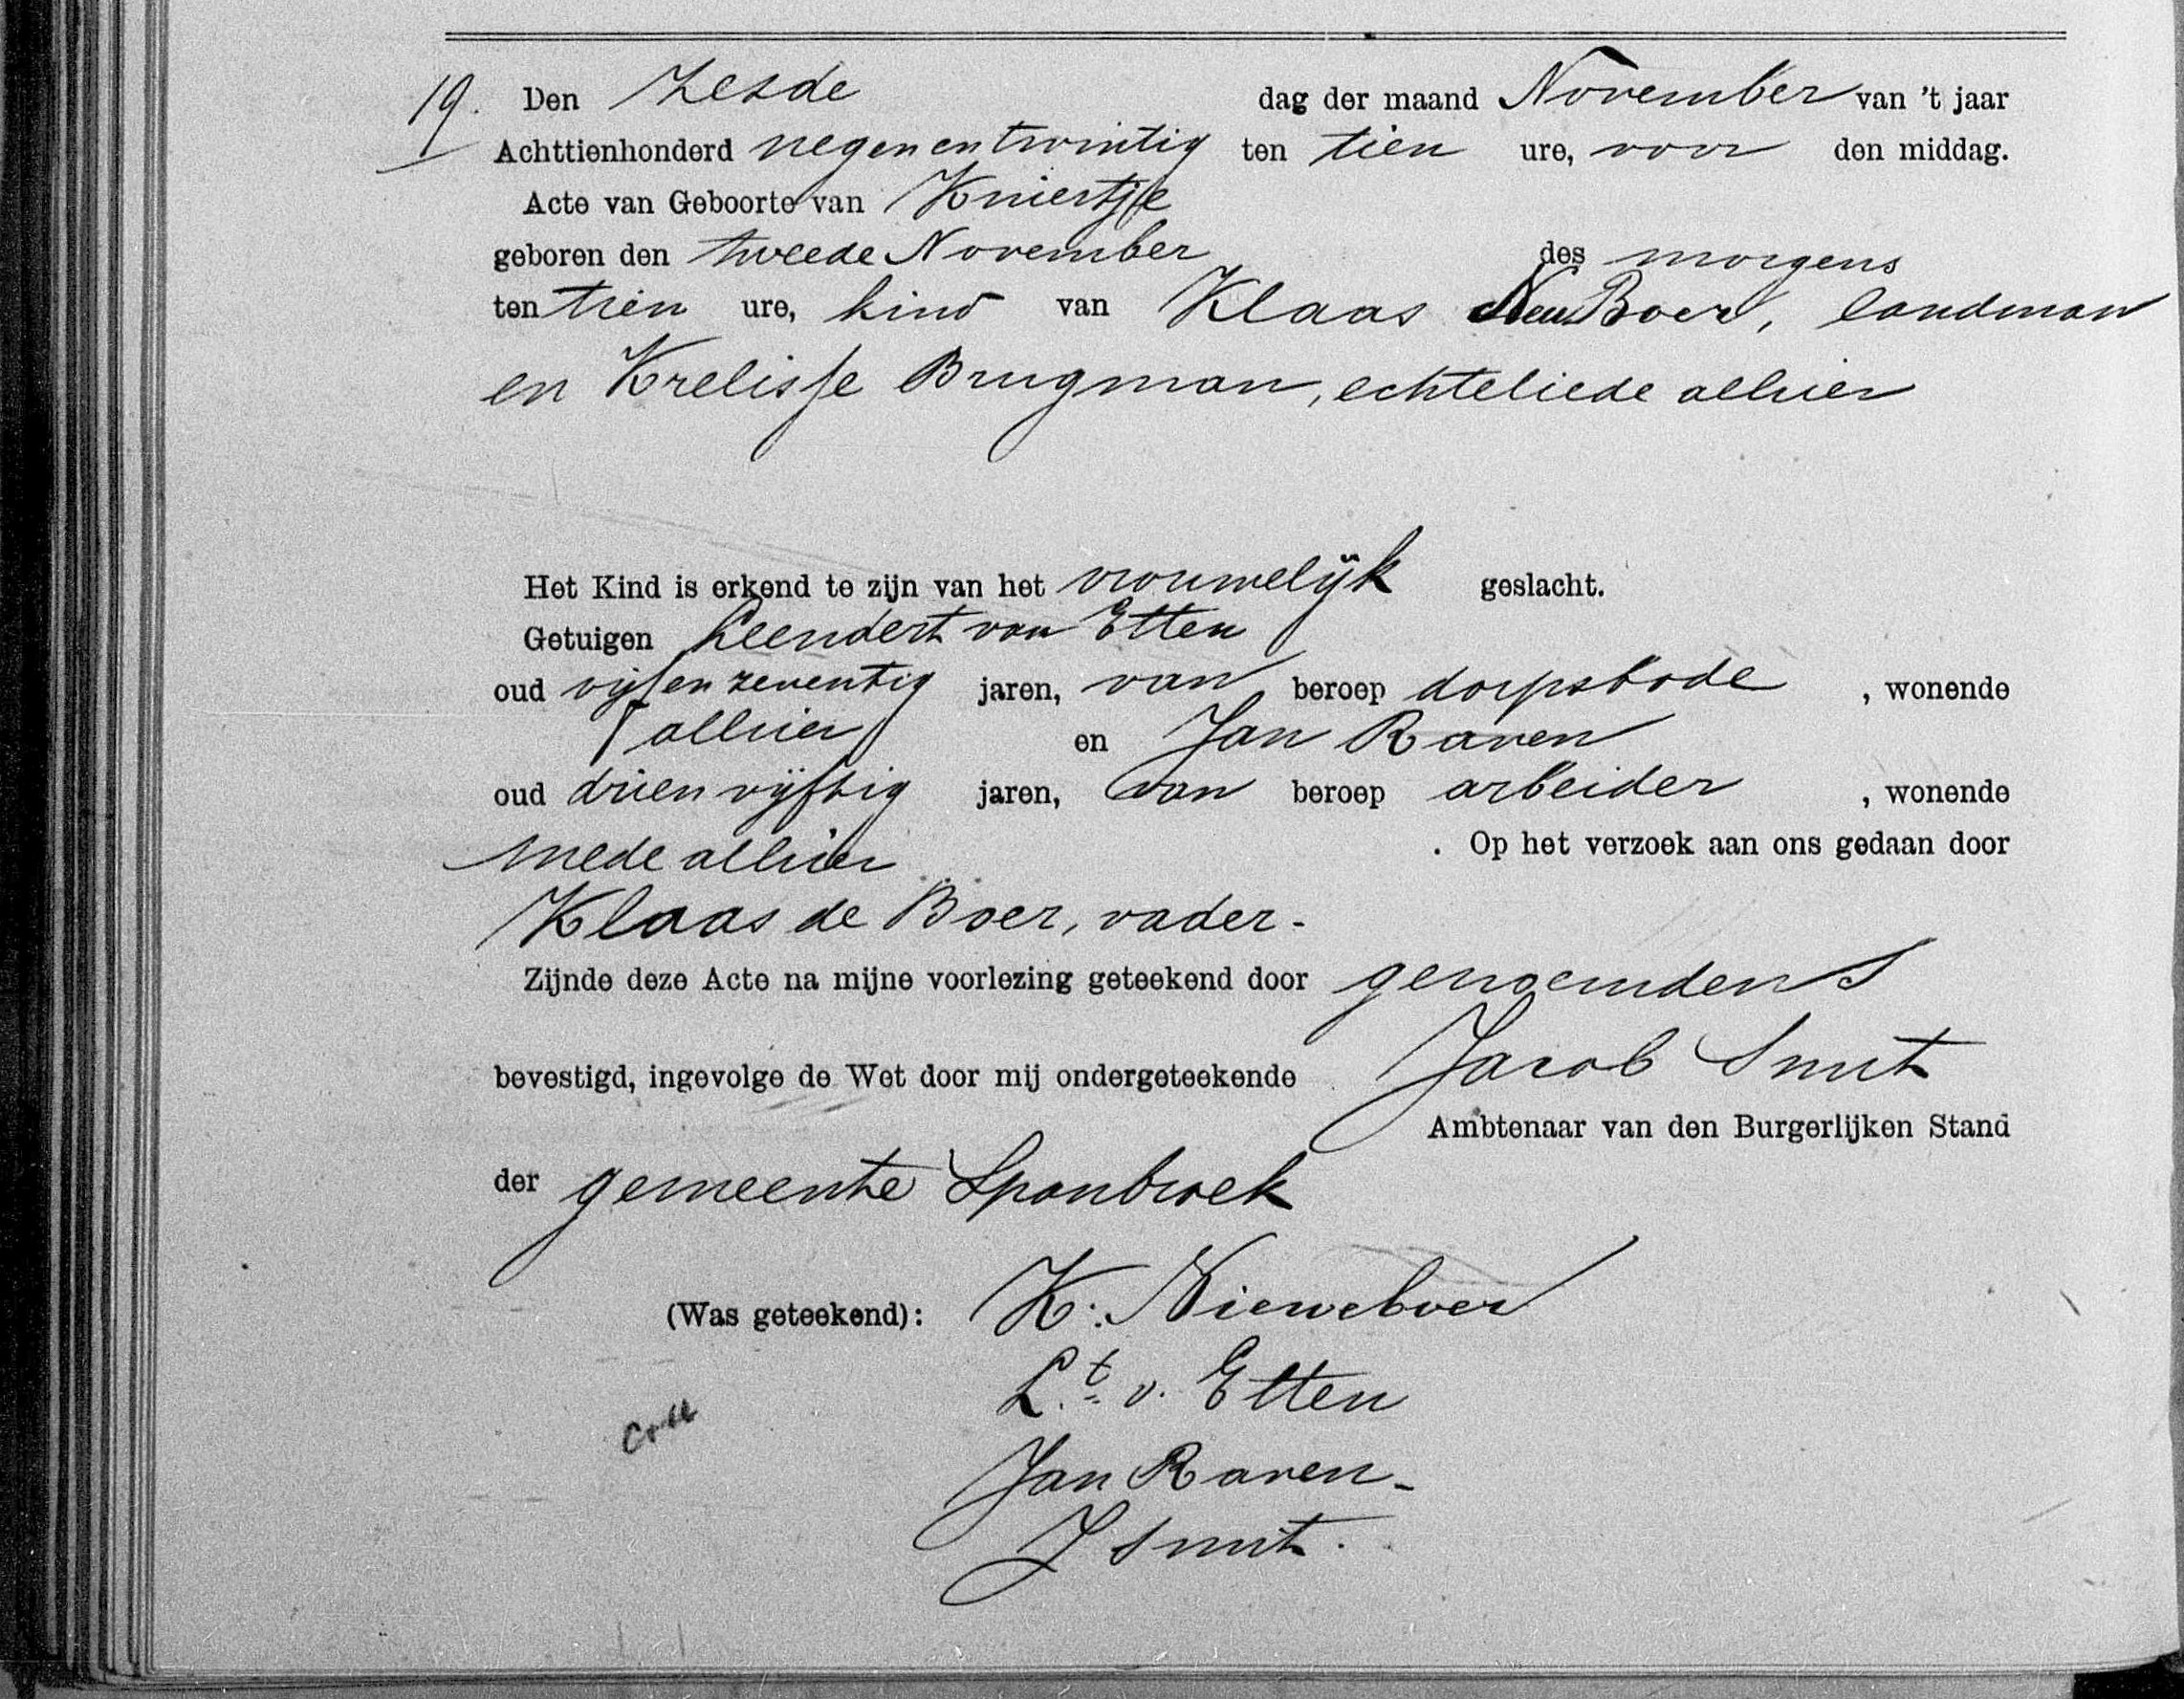 19. Den Zesde dag der maand November van 't jaar
Achttienhonderd negen en twintig ten tien ure, voor den middag.
Acte van Geboorte van Kniertje
geboren den tweede November des morgens
ten tien ure, kind van Klaas Boer, landman
en Krelisje Brugman, echteliede alhier
Het Kind is erkend te zijn van het vrouwelijk geslacht.
Getuigen Leendert van Etten
oud vijf en zeventig jaren, van beroep dorpsbode , wonende
alhier en Jan Raven
oud drien vijftig jaren, van beroep arbeider , wonende
mede alhier . Op het verzoek aan ons gedaan door
Klaas de Boer, vader.
Zijnde deze Acte na mijne voorlezing geteekend door genoemden
bevestigd, ingevolge de Wet door mij ondergeteekende Jacob Smit
Ambtenaar van den Burgerlijken Stand
der gemeente Spanbroek
(Was geteekend): K. Nieweboer
L.t v. Etten
Jan Raven
J Smit.